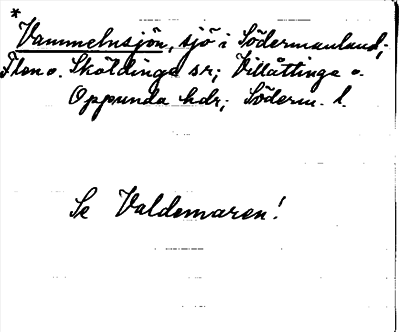 *
Vammelnsjön, sjö i Södermanland;
Flen o. Sköldinge sr; Villåttinge o.
Oppunda hdr; Söderm. l.
Se Valdemaren!